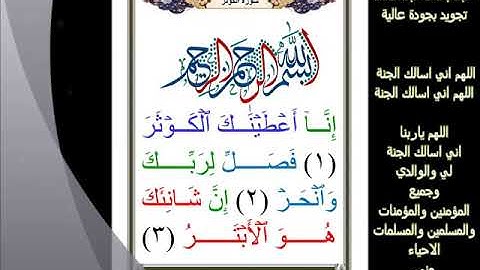 سورة الكوثر
بسم الله الرحمن الرحيم
إِنَّآ أَعْطَيْنَـٰكَ ٱلْكَوْثَرَ
(١) فَصَلِّ لِرَبِّكَ
وَٱنْحَرْ (٢) إِنَّ شَانِئَكَ
هُوَ ٱلْأَبْتَرُ (٣)
تجويد بجودة عالية
اللهم اني اسالك الجنة
اللهم اني اسالك الجنة
اللهم ياربنا
اني اسالك الجنة
لي والوالدي
وجميع
المؤمنين والمؤمنات
والمسلمين والمسلمات
الاحياء